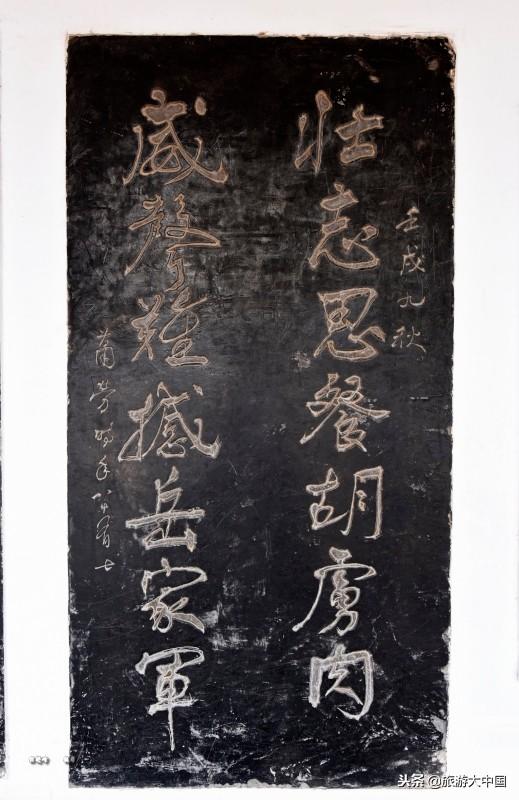 壬戌九秋
壮志思餐胡虜肉
威聲難撼岳家軍
萧劳时年八十有七
头条 @旅游大中国